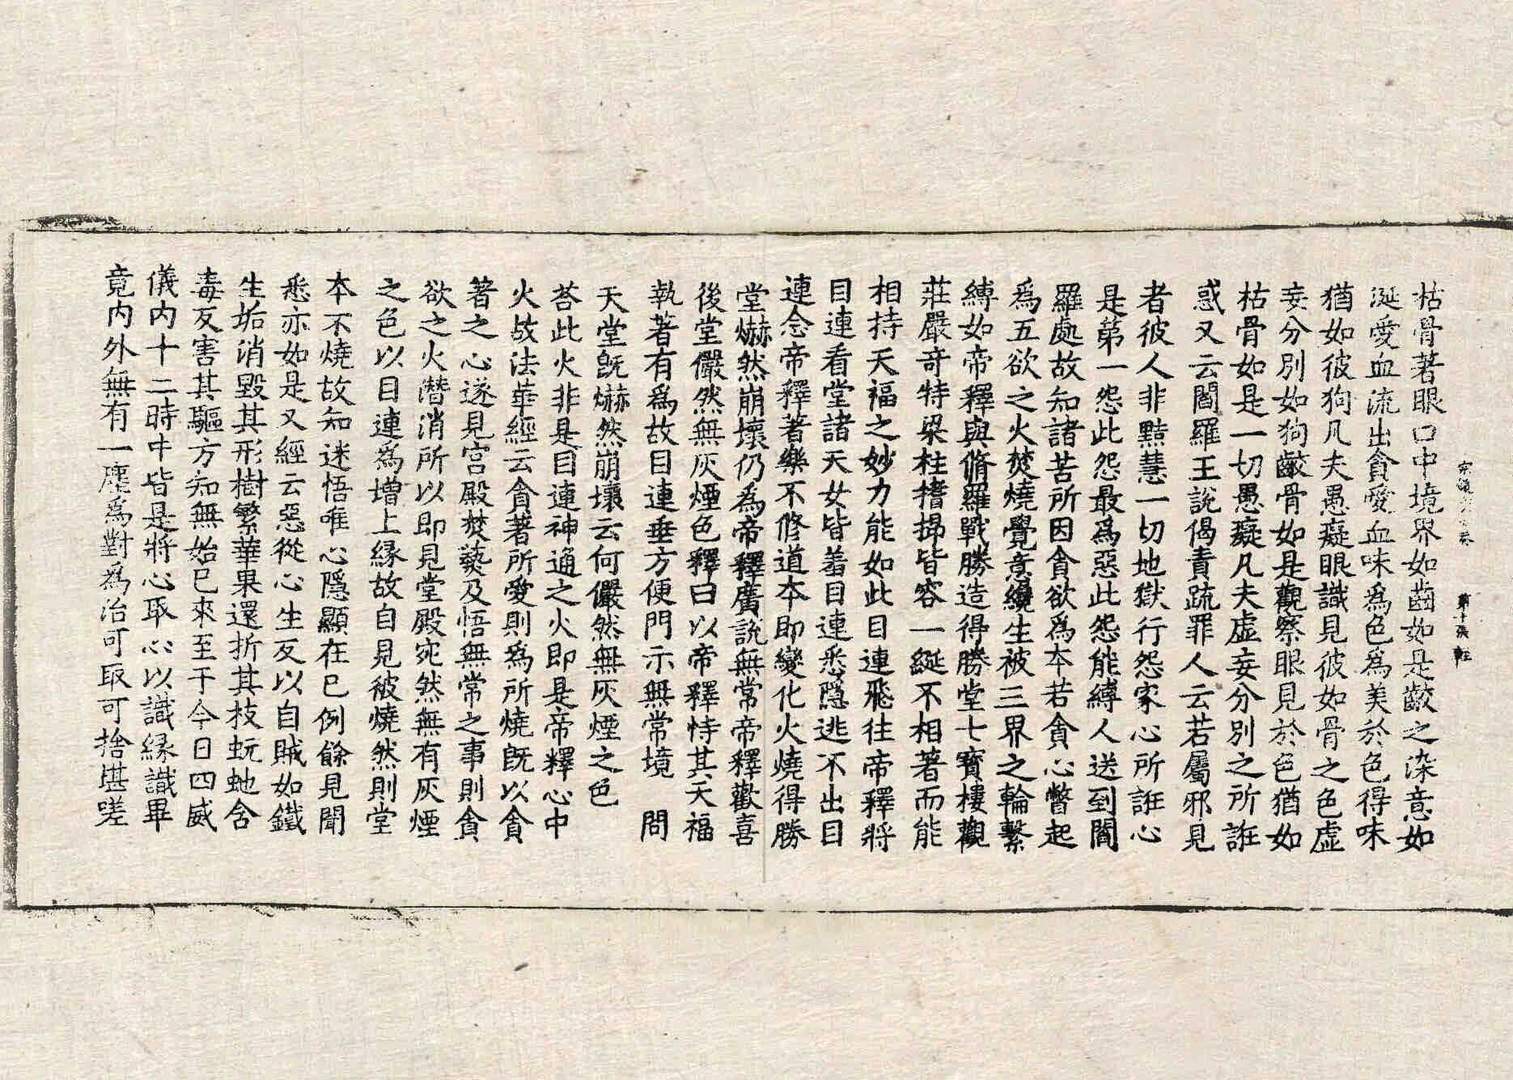 枯骨著眼口中境界如齒如是齩之染意如
涎愛血流出貪愛血味為色為美於色得味
猶如彼狗凡夫愚癡眼識見彼如骨之色虛
妄分別如狗齩骨如是觀察眼見於色猶如
枯骨如是一切愚癡凡夫虛妄分別之所誑
惑又云閻羅王說偈責疏罪人云若屬邪見
者彼人非黠慧一切地獄行怨家心所誑心
是第一怨此怨最為惡此怨能縛人送到閻
羅處故知諸苦所因貪欲為本若貪心瞥起
為五欲之火焚燒覺意纔生被三界之輪繫
縛如帝釋與脩羅戰勝造得勝堂七寶樓觀
莊嚴奇特梁柱榰㮇皆容一綖不相著而能
相持天福之妙力能如此目連飛往帝釋將
目連看堂諸天女皆羞目連悉隱逃不出目
連念帝釋著樂不修道本即變化火燒得勝
堂爀然崩壞仍為帝釋廣說無常帝釋歡喜
後堂儼然無灰煙色釋曰以帝釋恃其天福
執著有為故目連垂方便門示無常境 問
天堂旣爀然崩壞云何儼然無灰煙之色
荅此火非是目連神通之火即是帝釋心中
火故法華經云貪著所愛則為所燒旣以貪
著之心遂見宮殿焚爇及悟無常之事則貪
欲之火潛消所以即見堂殿宛然無有灰煙
之色以目連為增上緣故自見被燒然則堂
本不燒故知迷悟唯心隱顯在已例餘見聞
悉亦如是又經云惡從心生反以自賊如鐵
生垢消毀其形樹繁華果還折其枝蚖虵含
毒反害其驅方知無始已來至于今日四威
儀內十二時中皆是將心取心以識緣識畢
竟內外無有一塵為對為治可取可捨堪嗟